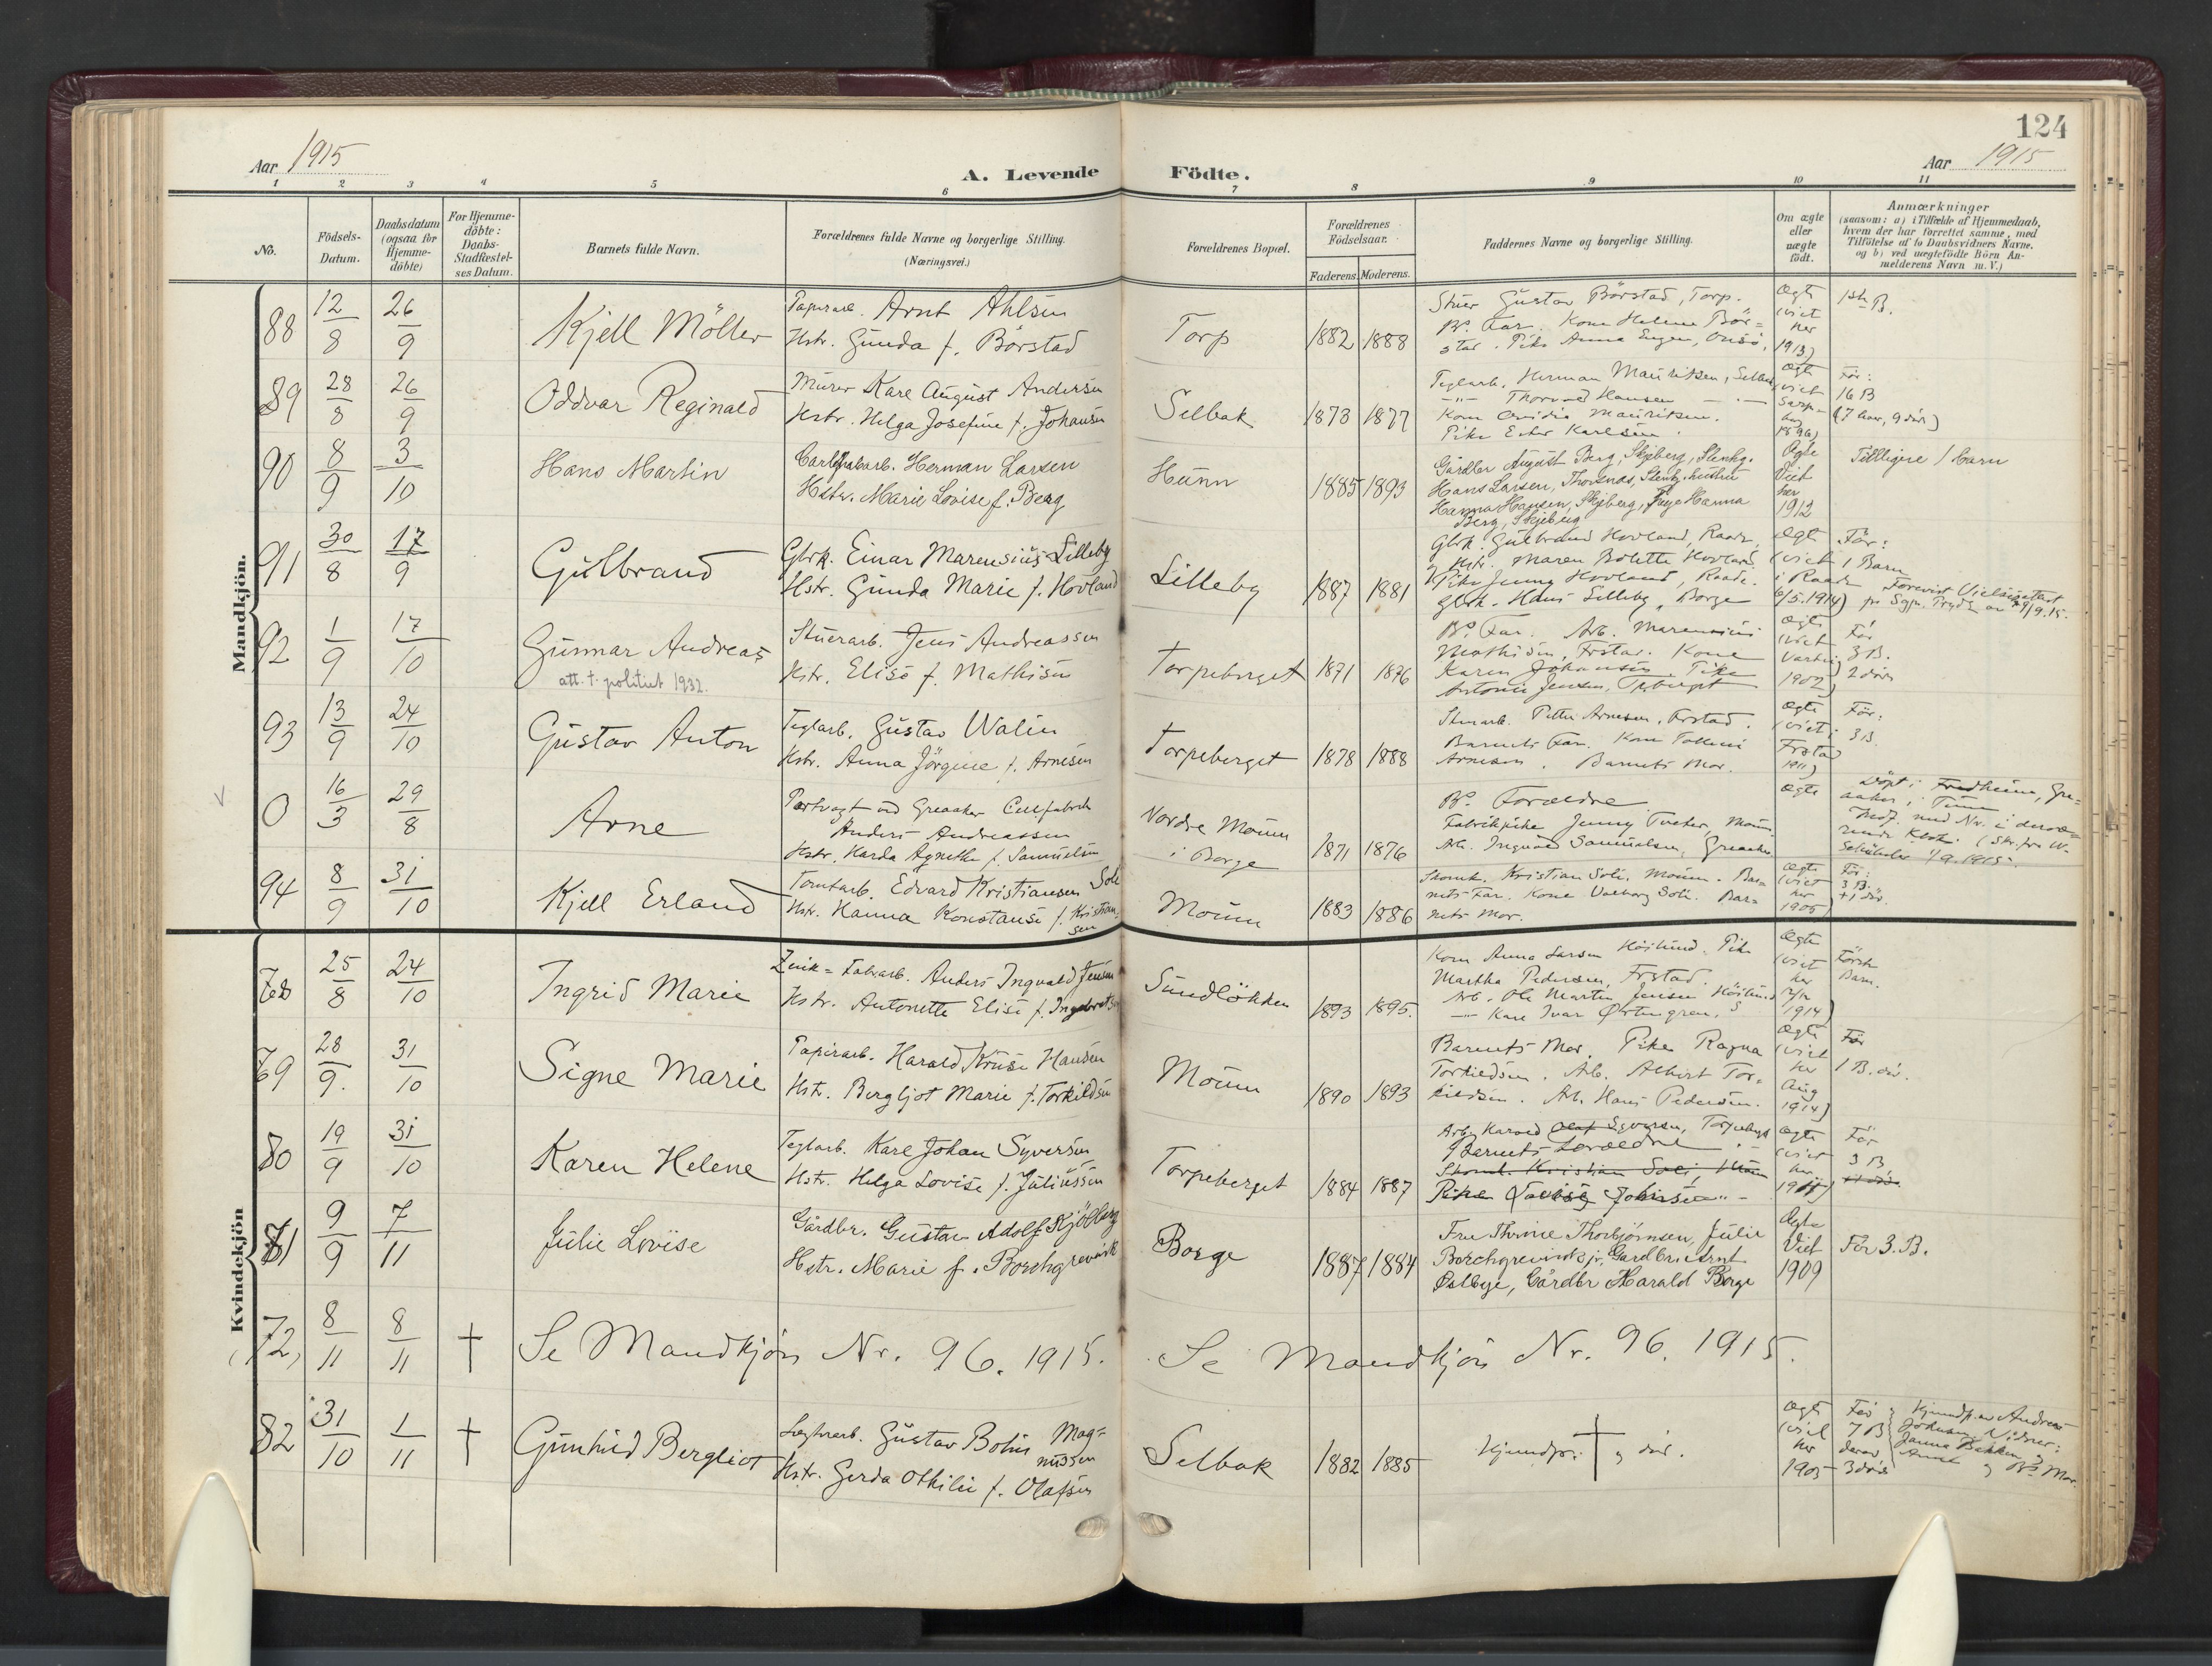 124
Aar 1915
A. Levende Födte.
Aar 1915
1 2 3 4 5 6 7 8 9 10 11
No.
Födsels-
Datum.
Daabsdatum
(ogsaa for
Hjemme-
döbte)
For Hjemme-
döbte:
Daabs-
Stadfæstel-
ses Datum.
Barnets fulde Navn.
Forældrenes fulde Navne og borgerlige Stilling.
(Næringsvei.)
Forældrenes Bopæl.
Forældrenes
Födselsaar.
Faderens. Moderens.
Faddernes Navne og borgerlige Stilling.
Om ægte
eller
uægte
födt.
Anmærkninger
(saasom: a) i Tilfælde af Hjemmedaab,
hvem der har forrettet samme, med
Tilföielse af to Daabsvidners Navne.
og b) ved uægtefödte Börn An-
melderens Navn m. V.)
Mandkjön.
88 12/8 26/9 Kjell Möller
Papirarb. Arnt Ahlsen
Hstr. Gunda f. Börstad
Torp 1882 1888
Gustav Börstad, Torp.
Bs. Far. Kone Helene Bör-
stad. Pike Anna
Ægte
(viet
her
1913)
1ste B.
89 28/8 26/9 Oddvar Reginald
Murer Karl August Andersen
Hstr. Helga Josefine f. Johansen
Selbak 1873 1877
Teglarb. Herman Mauritsen, Selbak
-"- Thorvald Hansen -"-
Kone Mauritsen.
Pike Ester Karlsen.
Ægte
(viet
Sarp-
1896)
Før:
16 B
(7 lever, 9 død)
90 8/9 3/10 Hans Martin
Herman Larsen
Hstr. Marie Lovise f. Berg
Hunn 1885 1893
Gårdbr August Berg, Skjeberg,
Hans Larsen, Thorsnes,
Hanna Hansen, Skjeberg, Hanna
Berg, Skjeberg
Ægte
Viet
her
1912
Tidligere 1 barn
91 30/8 17/9 Gulbrand
Gbrk. Einar Marensius Lilleby
Hstr. Gunda Marie f. Hovland
Lilleby 1887 1881
Gbrk. Gulbrand Hovland, Raade,
Hstr. Maren Bolette Hovland.
Pike Jenny Hovland, Raade.
Gbrk. Hans Lilleby, Borge
Ægte
(viet
i Raade
6/5.1914)
Før:
1 Barn
Forevist Vielsesattest
92 1/9 17/10 Gunnar Andreas
att. t. politiet 1932.
Stuerarb. Jens Andreassen
Hstr. Elise f. Mathisen
Torpeberget 1871 1876
Bs. Far. Arb. Marensius
Mathisen, Frstad. Kone
Karen Johansen. Pike
Antonie Jensen, Tpberget
Ægte
(viet
Varteig
1902)
Før
3 B.
2 døde
93 13/9 24/10 Gustav Anton
Teglarb. Gustav Walin
Hstr. Anna Jörgine f. Arnesen
Torpeberget 1878 1888
Stuarb. Petter Arnesen, Frstad.
Barnets Far. Kone
Arnesen. Barnets Mor.
Ægte
(viet i
Frstad
1911)
Før:
3 B
0 16/3 29/8 Arne
Portvagt ved Greaaker Cellfabrik
Anders Andreassen
Hstr. Harda Agnethe f. Samuelsen
Nordre Moum
i Borge
1871 1876
Bs. Forældre
Fabrikpike Jenny Tveter, Moum.
Arb. Ingvald Samuelsen, Greaaker
Ægte
Døpt i Fredheim, Gre-
aaker, i Tune
94 8/9 31/10 Kjell Erland
Tomtarb. Edvard Kristiansen Soli
Hstr. Hanna Konstanse f. Kristian-
sen
Moum 1883 1886
Skomk. Kristian Soli, Moum. Bar-
nets Far. Kone Valborg Soli. Bar-
nets Mor.
Ægte
(viet
her
1905)
Før:
3 B.
+ 1 død.
Kvindekjön
78 25/8 24/10 Ingrid Marie
Zink-Fabrarb. Anders Ingvald Jensen
Hstr. Antonette Elise f. Ingebretsen
Sundlökken 1893 1895.
Kone Anna Larsen Höilund. Pike
Martha Pedersen, Frstad.
Arb. Ole Martin Jensen Höilund
-"- Karl Ivar
Ægte
(viet
her
1914)
Første
Barn.
79 28/9. 31/10 Signe Marie
Papirarb. Harald Kruse Hansen
Hstr. Bergljot Marie f. Torkildsen
Moum 1890 1893
Barnets Mor. Pike Ragna
Torkildsen. Arb. Albert Tor-
kildsen. Arb. Hans Pedersen.
Ægte
(viet
her
Aug
1914)
Før
1 B. død.
80 19/9 31/10 Karen Helene
Teglarb. Karl Johan Syversen
Hstr. Helga Lovise f. Juliussen
Torpeberget 1884 1887
Arb. Karoed Olaf Syversen, Torpebgt
Barnets Forældre
Skomk. Kristian Soli, Moum
Pike Lovise Johnsen -"-
Ægte
(viet
her
Før
3 B
81 9/9 7/11 Julie Lovise
Gårdbr. Gustav Adolf Kjölberg
Hstr. Marie f. Borchgrevink
Borge 1887 1884
Fru Thrine Thorbjørnsen, Julie
Borchgrevink jr, Gardbr. Arnt
Østbye, Gårdbr Harald Borge
Ægte
Viet
1909
Før 3. B.
(72) 8/11 8/11 † Se Mandkjön Nr. 96. 1915. Se Mandkjön Nr. 96. 1915.
82 31/10 1/11 † Gunhild Bergliot
Gustav Bolin Mag-
nussen
Hstr. Gerda Othilie f. Olafsen
Selbak 1882 1885
Hjemdpt. † død.
Ægte
(viet
her
1905
Før
7 B
derav
3 døde
Hjemdp. av Andreas
Johansen, Vidner:
Janna Bakken
Bs. Mor.